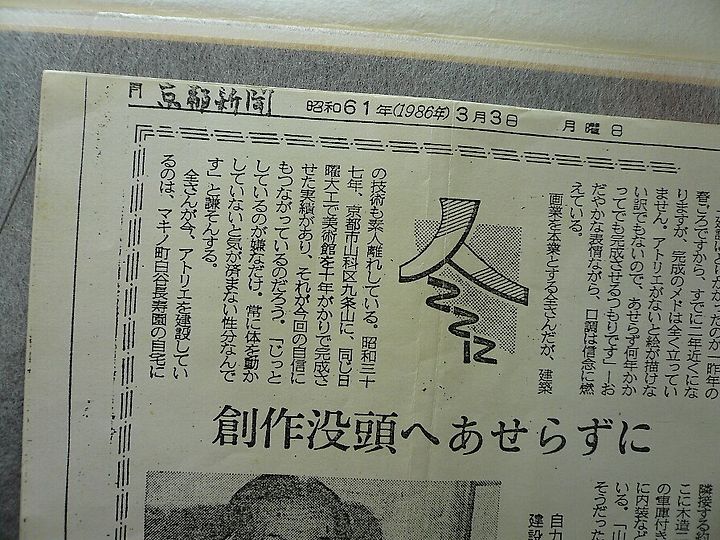 月 京都新聞 昭和61年(1986年)3月3日 月曜日
のが一昨年の
春ころですから、すでに二年近くにな
りますが、完成のメドは全く立ってい
ません。アトリエがないと絵が描けな
い訳でもないので、あせらず何年かか
ってでも完成させるつもりです」―お
だやかな表情ながら、口調は信念に燃
えている。
画業を本業とする全さんだが、建築
人
ここに
の技術も素人離れしている。昭和三十
七年、京都市山科区九条山に、同じ日
曜大工で美術館を十年がかりで完成さ
せた実績があり、それが今回の自信に
もつながっているのだろう。「じっと
しているのが嫌なだけ。常に体を動か
していないと気が済まない性分なんで
す」と謙そんする。
全さんが今、アトリエを建設してい
るのは、マキノ町白谷長寿園の自宅に
創作没頭へあせらずに
隣接する約
こに木造二
の車庫付き
に内装など
いる。「山
そうだった
自力
建設